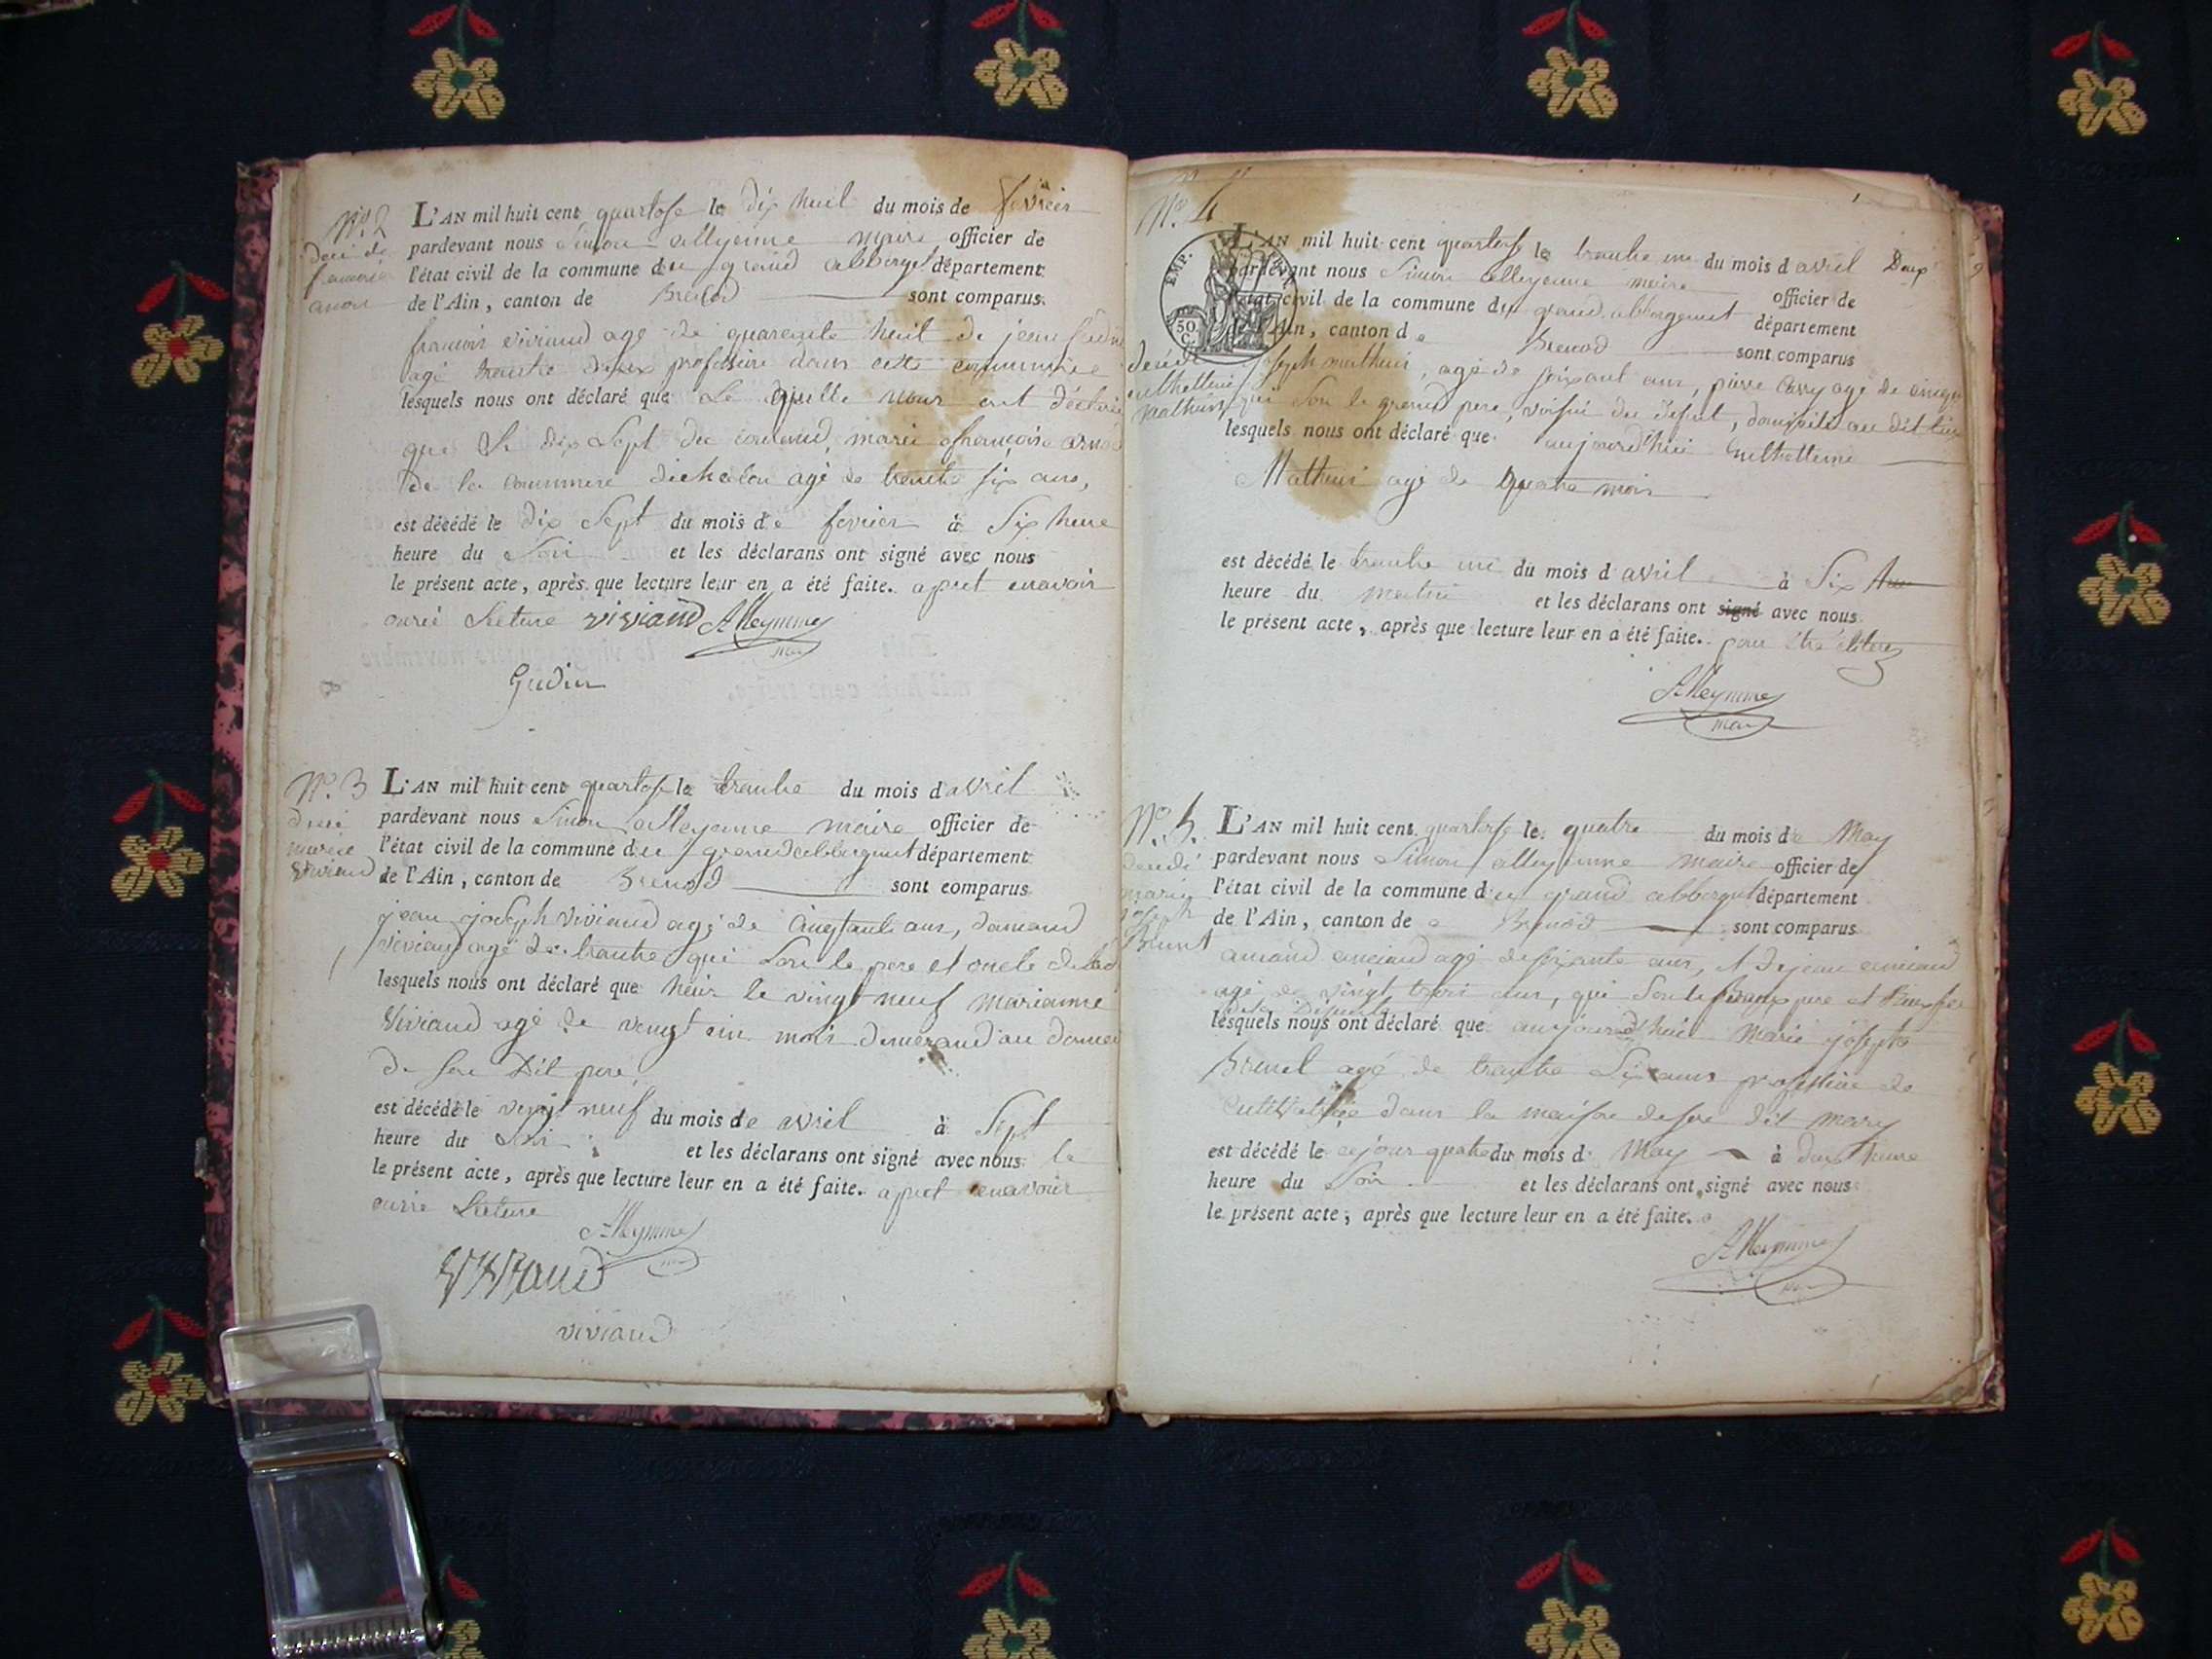 N.° 2
L'AN mil huit cent quartose le dix huit du mois de fevrier
pardevant nous Simon alleymme maire officier de
l'état civil de la commune du grand abbergt département
de l'Ain, canton de Brenod sont comparus
francois viviand agé de quarente huit de jean
agé trente deux professure dans cette commune
lesquels nous ont déclaré que Le quelle nous ont déclaré
que le dix Sept du courand, marie francoise
de la commune agé de trente six ans,
est décédé le dix Sept du mois de fevrier à Six heure
heure du Soir et les déclarans ont signé avec nous
le présent acte, après que lecture leur en a été faite. apret enavoir
ourié Lecture viviand Alleymme
maire
Gudin
N.° 3
décé
marie
viviand
L'AN mil huit cent quartose le trante du mois d'avril
pardevant nous Simon alleymme maire officier de
l'état civil de la commune du grand abbergment département
de l'Ain, canton de Brenod sont comparus
jean joseph viviand agé de cinqtante ans, damand
viviand agé de trante qui Son le pere et oncle
lesquels nous ont déclaré que heir le vingt neuf marianne
Viviand agé de vengt ein mois demerand au
de Son Dit pere,
est décédé le vengt neuf du mois de avril à Sept
heure du Soir et les déclarans ont signé avec nous le
le présent acte, après que lecture leur en a été faite. apret enavoir
ourié Lecture
Alleymme
viviand
viviand
N.° 4
EMP.
50
C.
Deux
L'AN mil huit cent quartose le trante un du mois d avril
pardevant nous Simon alleymme maire officier de
l'état civil de la commune du grand abbergment département
de l'Ain, canton de Brenod sont comparus
décé
mathieu
joseph mathieu, agé de soixant ans, pierre Carry agé de
qui Son le grand pere, voisin du defunt, domicilié au dit lieu
lesquels nous ont déclaré que aujourd'hui
Mathieu agé de quatre mois
est décédé le trante un du mois d avril à Six
heure du matin et les déclarans ont signé avec nous
le présent acte, après que lecture leur en a été faite. pour être
Alleymme
maire
N.° 5.
décédé
marie
joseph
Brunet
L'AN mil huit cent quartose le quatre du mois de May
pardevant nous Simon alleymme maire officier de
l'état civil de la commune du grand abbergmt département
de l'Ain, canton de Brenod sont comparus
amand agé de soixante ans, et de jean
agé de vingt troi ans, qui Son le Beaux pere et Beaux frere
de la Defunte
lesquels nous ont déclaré que aujourd'hui Marie joseph
Brunet agé de trante Six ans professiue de
cultivatrice dans la maison de son dit mary
est décédé le cejour quatre du mois d May à deux heure
heure du Soir et les déclarans ont signé avec nous
le présent acte, après que lecture leur en a été faite.
Alleymme